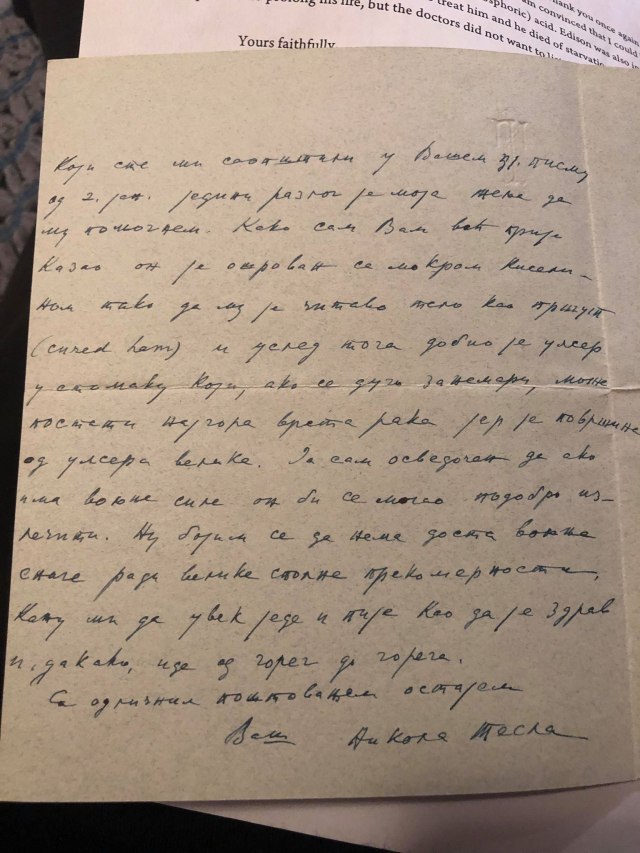 thank you once again
am convinced that I could
osphoric) acid. Edison was also in
prolong his life, but the doctors did not want to
treat him and he died of
Yours faithfully
Који сте ми саопштили у Вашем писму
од 2. јан. једини разлог је моја жеља да
му помогнем. Како сам Вам већ прије
казао он је отрован са мокром кисели-
ном тако да му је читаво тело као пршут
(cured ham) и услед тога добио је улсер
у стомаку који, ако се дуго занемари, може
постати најгора врста рака јер је површина
од улсера велика. Ја сам осведочен да ако
има вољне силе он би се могао подобро из-
лечити. Ну бојим се да нема доста вољне
снаге ради велике сполне прекомерности.
Кажу ми да увек једе и пије као да је здрав
и, дакако, иде од горег до горега.
Са одличним поштовањем остајем
Ваш Никола Тесла